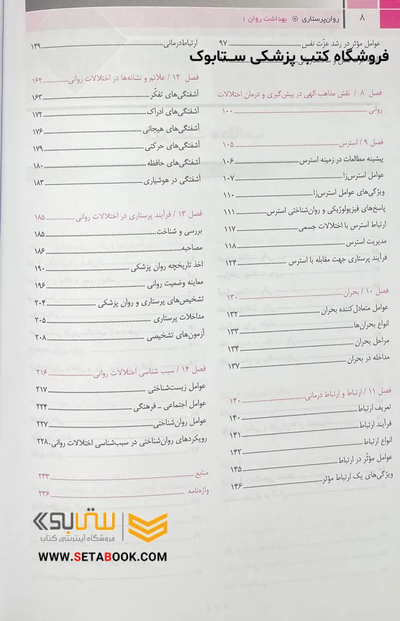 ۸ روان‌پرستاری ❋ بهداشت روان ۱
عوامل مؤثر در رشد عزّت نفس ۹۷
فروشگاه کتب پزشکی ستابوک
فصل ۸ / نقش مذاهب الهی در پیش‌گیری و درمان اختلالات
روانی ۱۰۰
فصل ۹ / استرس ۱۰۵
پیشینه مطالعات در زمینه استرس ۱۰۶
عوامل استرس‌زا ۱۰۷
ویژگی‌های عوامل استرس‌زا ۱۱۰
پاسخ‌های فیزیولوژیکی و روان‌شناختی استرس ۱۱۱
ارتباط استرس با اختلالات جسمی ۱۱۷
مدیریت استرس ۱۱۸
فرآیند پرستاری جهت مقابله با استرس ۱۲۴
فصل ۱۰ / بحران ۱۳۰
عوامل متعادل‌کننده بحران ۱۳۲
انواع بحران‌ها ۱۳۳
مراحل بحران ۱۳۴
مداخله در بحران ۱۳۷
فصل ۱۱ / ارتباط و ارتباط درمانی ۱۴۰
تعریف ارتباط ۱۴۰
فرآیند ارتباط ۱۴۱
انواع ارتباط ۱۴۲
عوامل مؤثّر در ارتباط ۱۴۵
ویژگی‌های یک ارتباط مؤثر ۱۴۶
ارتباط‌درمانی ۱۴۹
فصل ۱۲ / علائم و نشانه‌ها در اختلالات روانی ۱۶۲
آشفتگی‌های تفکّر ۱۶۳
آشفتگی‌های ادراک ۱۷۲
آشفتگی‌های هیجانی ۱۷۶
آشفتگی‌های حرکتی ۱۷۹
آشفتگی‌های حافظه ۱۸۰
آشفتگی در هوشیاری ۱۸۳
فصل ۱۳ / فرآیند پرستاری در اختلالات روانی ۱۸۵
بررسی و شناخت ۱۸۵
مصاحبه ۱۸۶
اخذ تاریخچه روان پزشکی ۱۹۰
معاینه وضعیت روانی ۱۹۶
تشخیص‌های پرستاری و روان پزشکی ۲۰۴
مداخلات پرستاری ۲۰۵
آزمون‌های تشخیصی ۲۰۸
فصل ۱۴ / سبب شناسی اختلالات روانی ۲۱۶
عوامل زیست‌شناختی ۲۱۷
عوامل اجتماعی ـ فرهنگی ۲۲۴
عوامل روان‌شناختی ۲۲۷
رویکردهای روان‌شناختی در سبب‌شناسی اختلالات روانی ۲۲۸
منابع ۲۳۳
واژه‌نامه ۲۳۶
ستابوک
فروشگاه اینترنتی کتاب
WWW.SETABOOK.COM